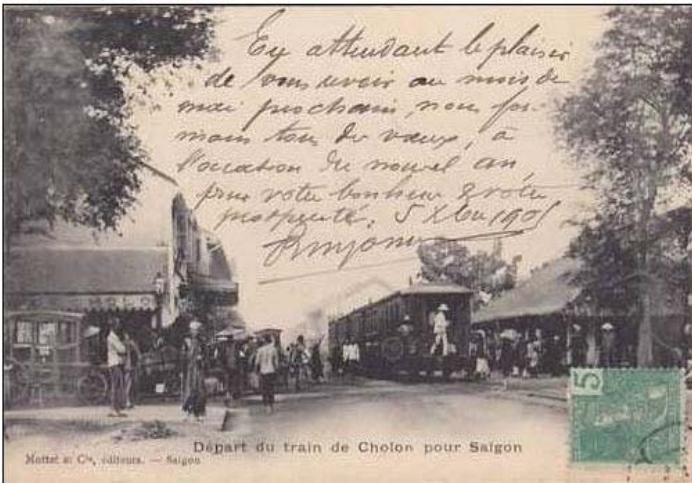 En attendant le plaisir
de vous revoir au mois de
mai prochain, nous for-
mons tous des vœux, à
l'occasion du nouvel an
pour votre bonheur & votre
prosperité. 5 Xbre 1905
Départ du train de Cholon pour Saigon
Mottet & Cie, éditeurs. — Saigon
5